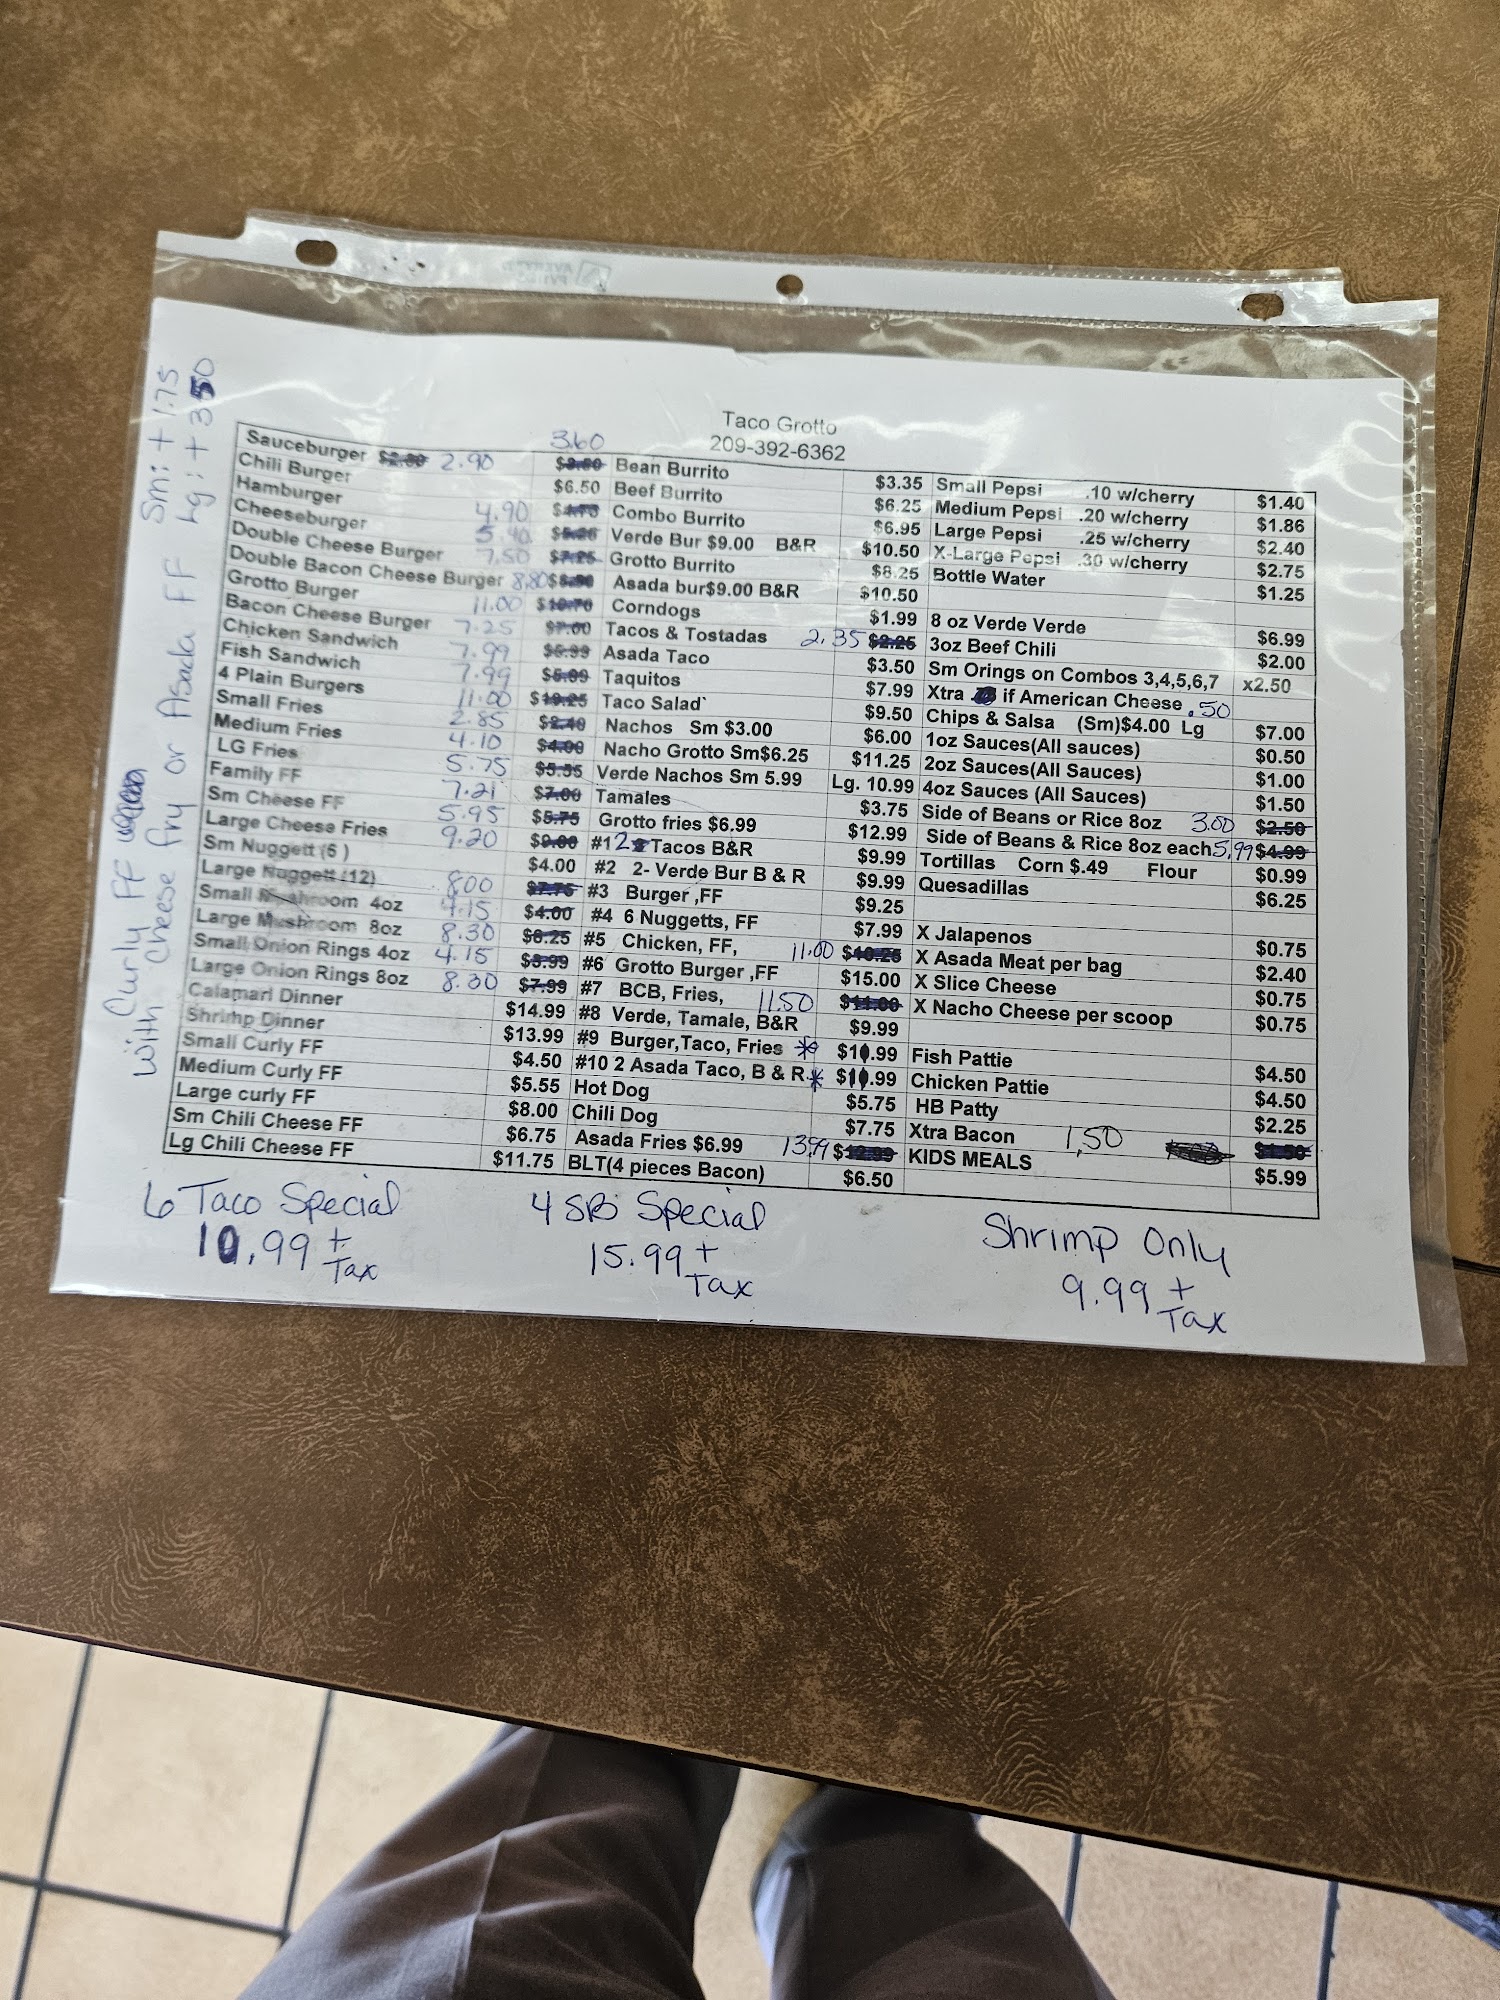 Taco Grotto
209-392-6362
Sauceburger $2.80 2.90 3.60 $3.50
Chili Burger $6.50
Hamburger 4.90 $4.75
Cheeseburger 5.40
Double Cheese Burger 7.50 $7.25
Double Bacon Cheese Burger 8.80
Grotto Burger 11.00 $10.70
Bacon Cheese Burger 7.25 $7.00
Chicken Sandwich 7.99
Fish Sandwich 7.99
4 Plain Burgers 11.00 $10.25
Small Fries 2.85 $2.40
Medium Fries 4.10 $4.00
LG Fries 5.75
Family FF 7.21 $7.00
Sm Cheese FF 5.95 $5.75
Large Cheese Fries 9.20 $9.00
Sm Nuggett (6 ) $4.00
Large Nuggett (12) 8.00 $7.75
Small Mushroom 4oz 4.15 $4.00
Large Mushroom 8oz 8.30 $8.25
Small Onion Rings 4oz 4.15 $3.99
Large Onion Rings 8oz 8.30 $7.99
Calamari Dinner $14.99
Shrimp Dinner $13.99
Small Curly FF $4.50
Medium Curly FF $5.55
Large curly FF $8.00
Sm Chili Cheese FF $6.75
Lg Chili Cheese FF $11.75
Bean Burrito $3.35
Beef Burrito $6.25
Combo Burrito $6.95
Verde Bur $9.00 B&R $10.50
Grotto Burrito $8.25
Asada bur$9.00 B&R $10.50
Corndogs $1.99
Tacos & Tostadas 2.35 $2.25
Asada Taco $3.50
Taquitos $7.99
Taco Salad` $9.50
Nachos Sm $3.00 $6.00
Nacho Grotto Sm$6.25 $11.25
Verde Nachos Sm 5.99 Lg. 10.99
Tamales $3.75
Grotto fries $6.99 $12.99
#1 2 Tacos B&R $9.99
#2 2- Verde Bur B & R $9.99
#3 Burger ,FF $9.25
#4 6 Nuggetts, FF $7.99
#5 Chicken, FF, 11.00 $10.25
#6 Grotto Burger ,FF $15.00
#7 BCB, Fries, 11.50 $11.00
#8 Verde, Tamale, B&R $9.99
#9 Burger,Taco, Fries * $10.99
#10 2 Asada Taco, B & R * $10.99
Hot Dog $5.75
Chili Dog $7.75
Asada Fries $6.99 13.99 $12.99
BLT(4 pieces Bacon) $6.50
Small Pepsi .10 w/cherry $1.40
Medium Pepsi .20 w/cherry $1.86
Large Pepsi .25 w/cherry $2.40
X-Large Pepsi .30 w/cherry $2.75
Bottle Water $1.25
8 oz Verde Verde $6.99
3oz Beef Chili $2.00
Sm Orings on Combos 3,4,5,6,7 x2.50
Xtra if American Cheese .50
Chips & Salsa (Sm)$4.00 Lg $7.00
1oz Sauces(All sauces) $0.50
2oz Sauces(All Sauces) $1.00
4oz Sauces (All Sauces) $1.50
Side of Beans or Rice 8oz 3.00 $2.50
Side of Beans & Rice 8oz each 5.99 $4.99
Tortillas Corn $.49 Flour $0.99
Quesadillas $6.25
X Jalapenos $0.75
X Asada Meat per bag $2.40
X Slice Cheese $0.75
X Nacho Cheese per scoop $0.75
Fish Pattie $4.50
Chicken Pattie $4.50
HB Patty $2.25
Xtra Bacon 1.50 $1.50
KIDS MEALS $5.99
6 Taco Special
10.99 + Tax
4 SB Special
15.99 + Tax
Shrimp Only
9.99 + Tax
Curly FF
with Cheese fry or Asada FF
Sm: + 1.75
Lg: + 3.50